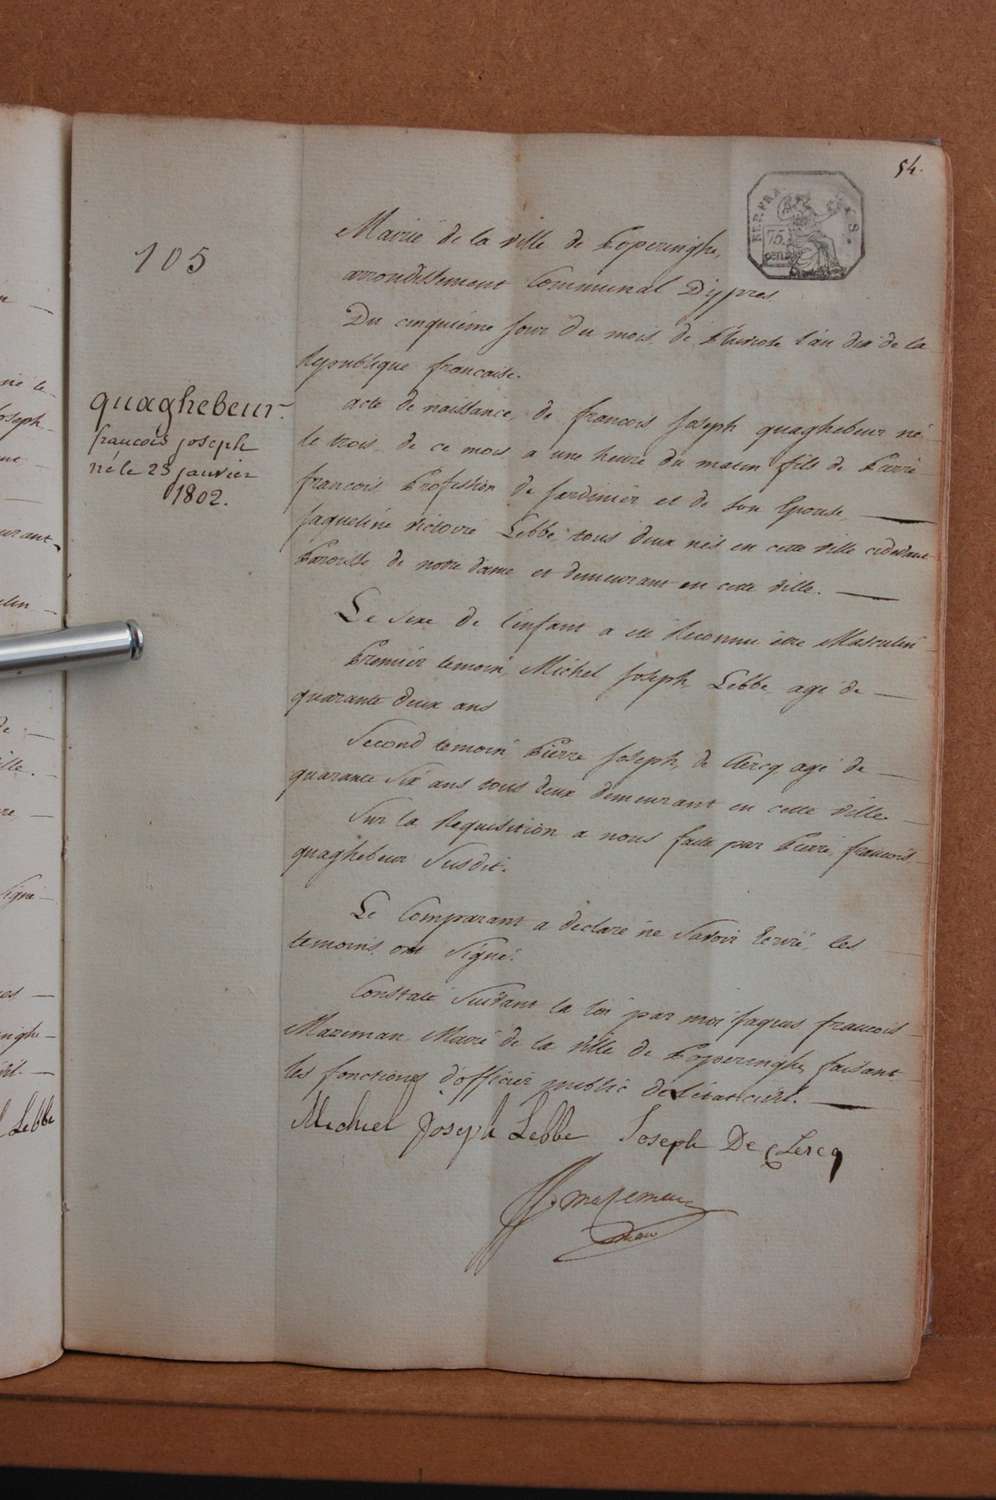 54.
REP. FRA
75.
cent.
105
Mairie de la ville de Poperinghe,
arrondissement Communal Dÿpres
Du cinquieme jour du mois de Pluviose l'an dix de la
Republique francaise.
quaghebeur.
francois joseph
né le 23 janvier
1802.
acte de naissance, de francois Joseph quaghebeur né
le trois de ce mois a une heure du matin fils de Pierre
francois Profession de Jardinier et de son Epouse
Jaqueline victoire Lebbe tous deux nés en cette ville cidevant
Paroisse de notre dame et demeurant en cette ville.
Le sexe de l'enfant a eté Reconnu être Masculin
Premier temoin, Michel Joseph Lebbe agé de
quarante deux ans
Second temoin Pierre Joseph de Clercq agé de
quarante Six ans tous deux demeurant en cette ville
Sur la Requisition a nous faite par Pierre francois
quaghebeur Susdit.
Le Comparant a declaré ne Savoir Ecrire les
temoins ont Signé.
Constaté Suivant la loi par moi Jaques francois
Mazeman Maire de la Ville de Poperinghe faisant
les fonctions d'officier public de l'état civil.
Michiel Joseph Lebbe Joseph De Clercq